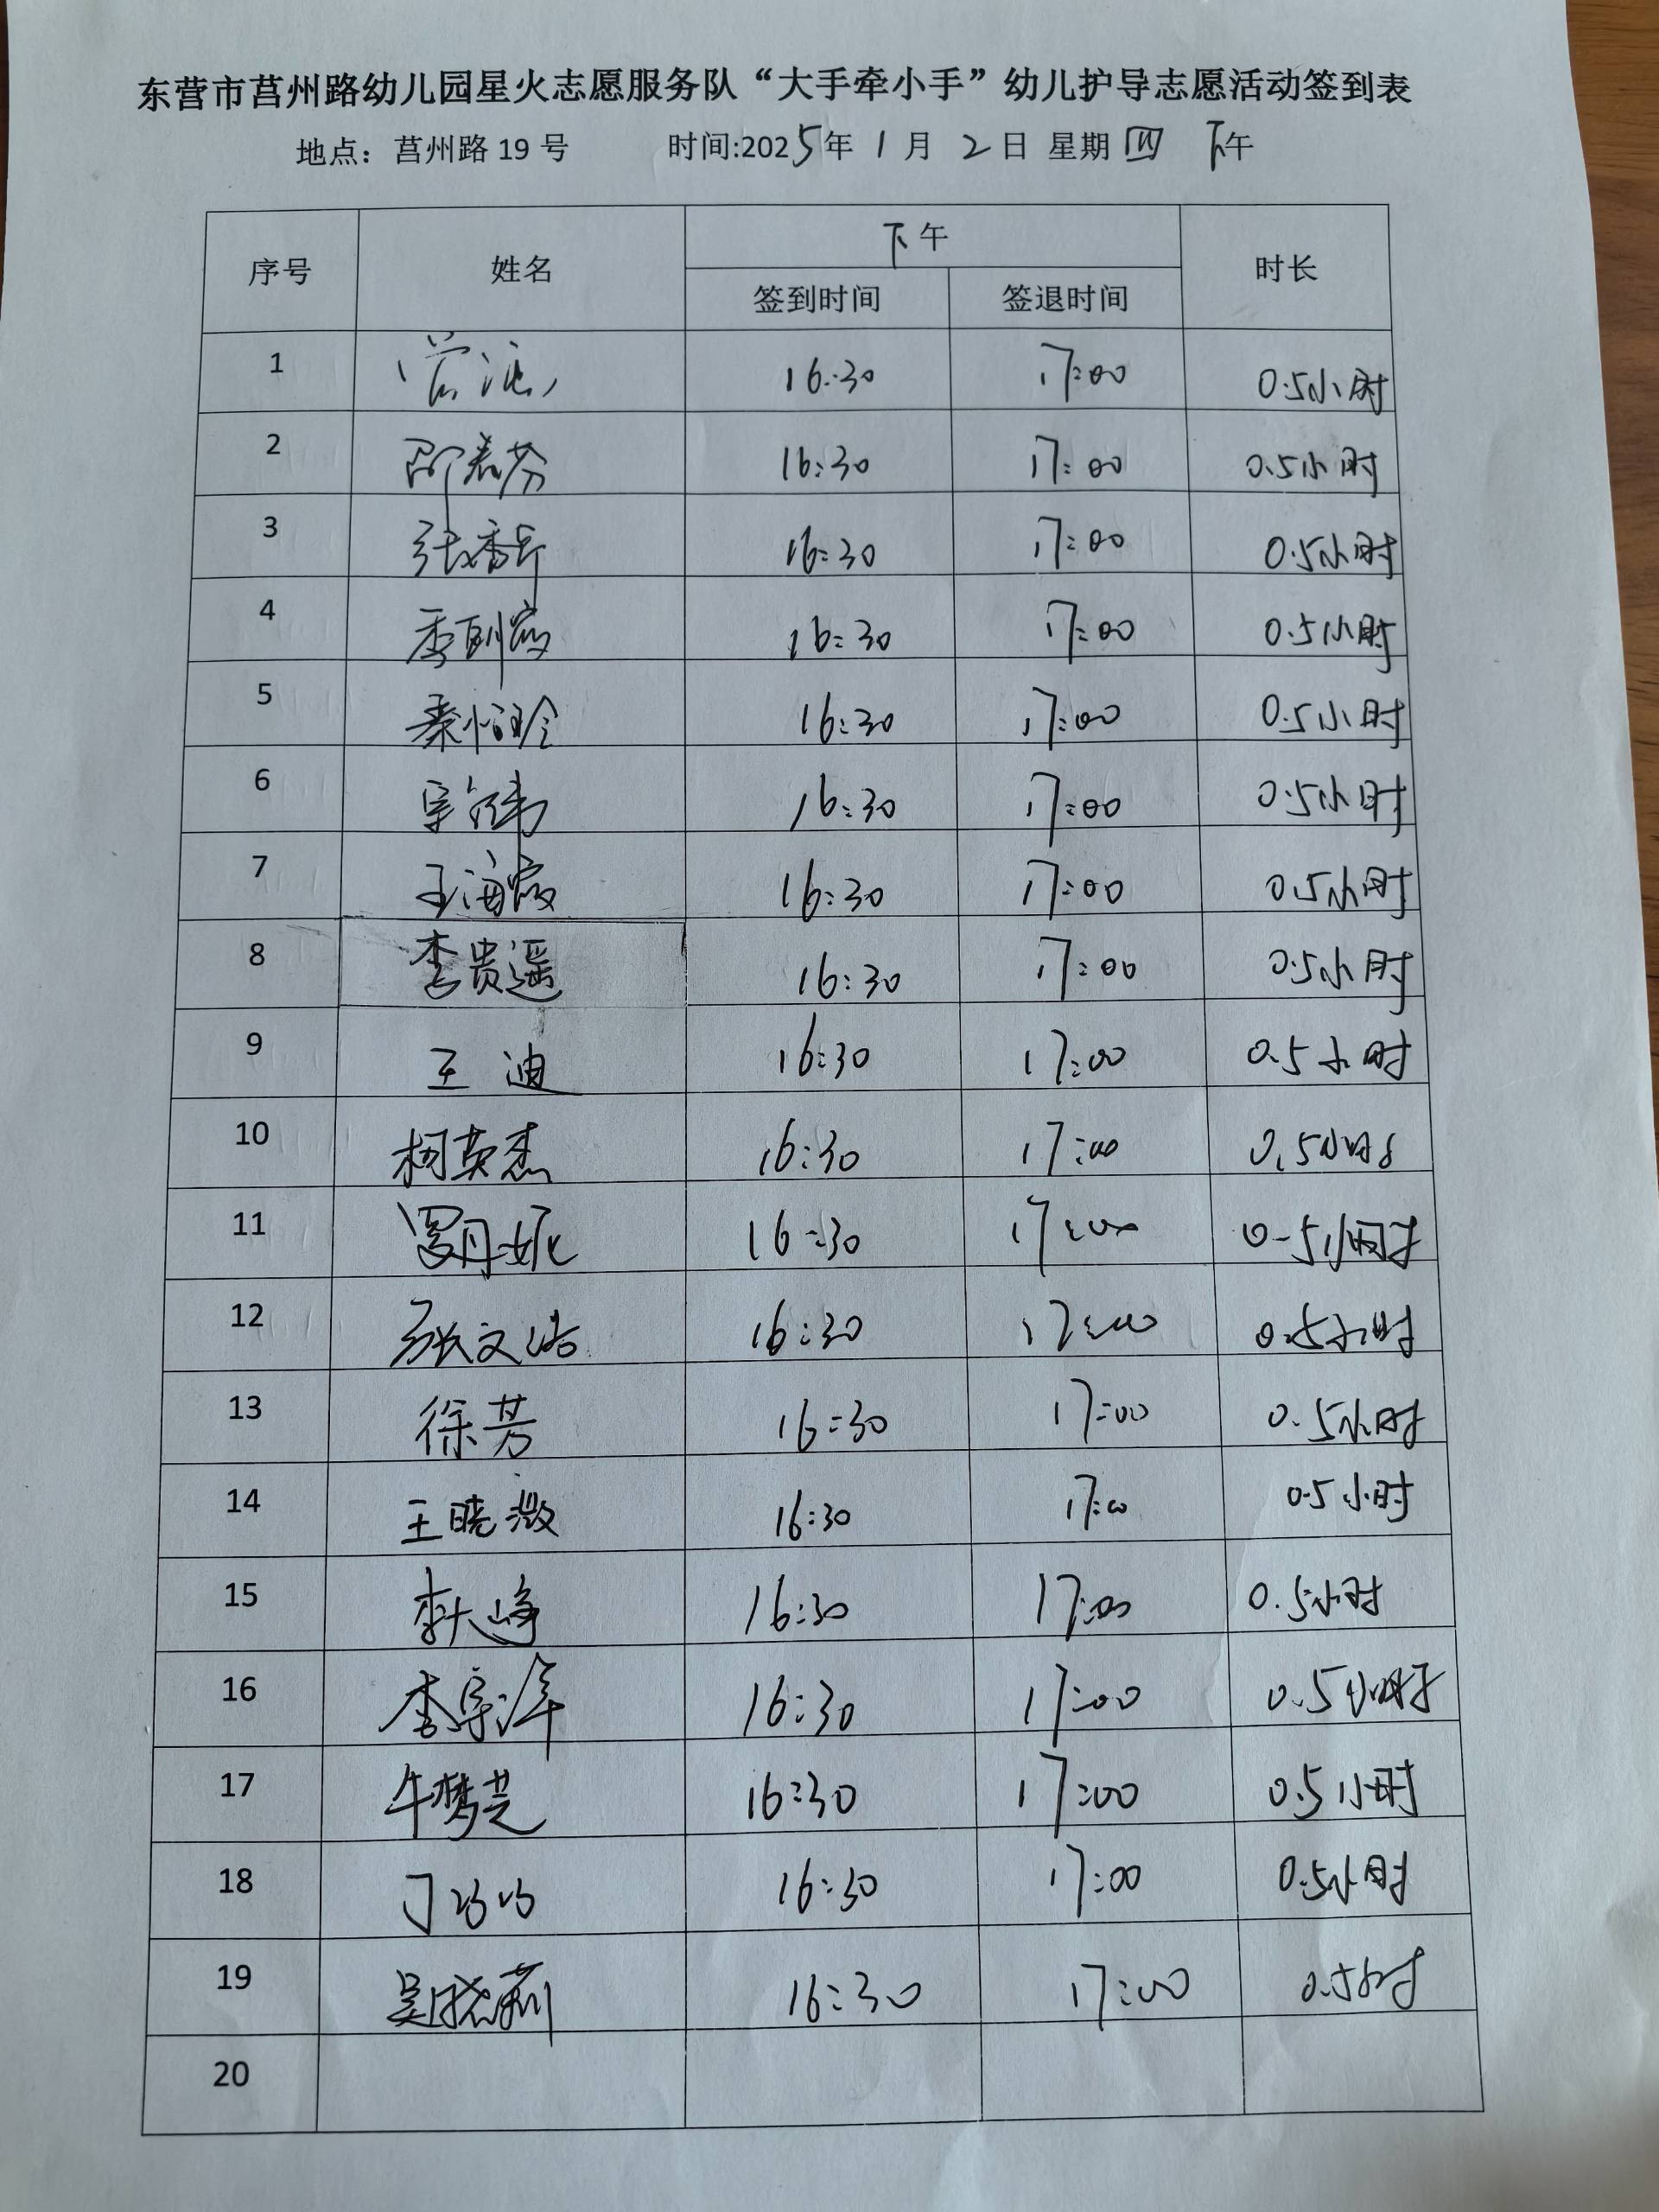 东营市莒州路幼儿园星火志愿服务队“大手牵小手”幼儿护导志愿活动签到表
地点：莒州路 19 号 时间:2025年 1 月 2 日 星期 四 下午
序号 姓名 下午 时长
签到时间 签退时间
1 16:30 17:00 0.5小时
2 邵春芬 16:30 17:00 0.5小时
3 张秀兵 16:30 17:00 0.5小时
4 16:30 17:00 0.5小时
5 秦怡玲 16:30 17:00 0.5小时
6 16:30 17:00 0.5小时
7 王海霞 16:30 17:00 0.5小时
8 李贵遥 16:30 17:00 0.5小时
9 王迪 16:30 17:00 0.5小时
10 柯英杰 16:30 17:00 0.5小时
11 罗丹妮 16:30 17:00 0.5小时
12 张文洁 16:30 17:00 0.5小时
13 徐芳 16:30 17:00 0.5小时
14 王晓潋 16:30 17:00 0.5小时
15 16:30 17:00 0.5小时
16 李宗泽 16:30 17:00 0.5小时
17 牛梦芝 16:30 17:00 0.5小时
18 丁巧巧 16:30 17:00 0.5小时
19 吴晓莉 16:30 17:00 0.5小时
20